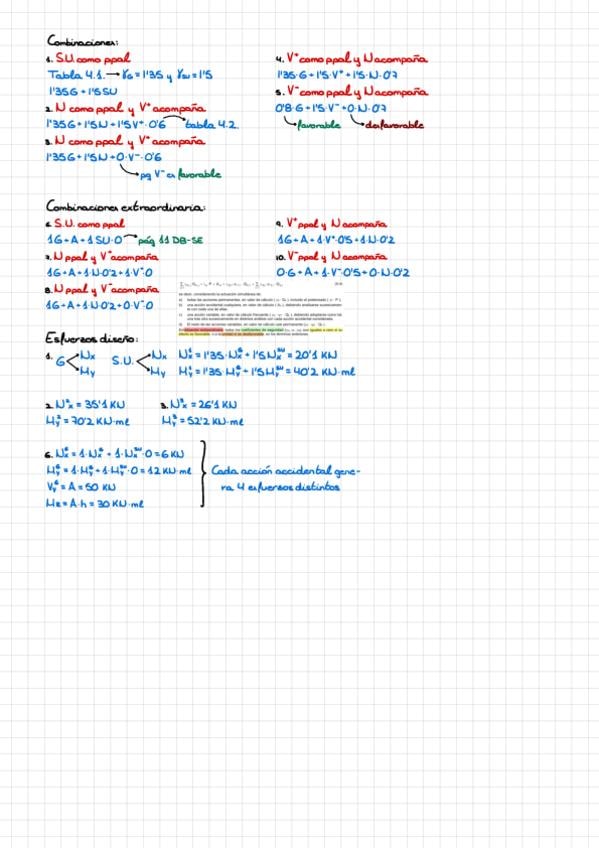 Combinaciones:
1. S.U. como ppal
Tabla 4.1. → γG = 1'35 y γSU = 1'5
1'35G + 1'5SU
2. N como ppal y V⁺ acompaña
1'35G + 1'5N + 1'5V⁺·0'6 → tabla 4.2.
3. N como ppal y V⁺ acompaña
1'35G + 1'5N + 0·V⁻·0'6
→ pq V⁻ es favorable
4. V⁺ como ppal y N acompaña
1'35·G + 1'5·V⁺ + 1'5·N·0'7
5. V⁻ como ppal y N acompaña
0'8·G + 1'5·V⁻ + 0·N·0'7
favorable
desfavorable
Combinaciones extraordinaria:
6. S.U. como ppal
1G + A + 1SU·0 → pág 11 DB-SE
7. N ppal y V⁺acompaña
1G + A + 1·N·0'2 + 1·V⁺·0
8. N ppal y V⁻acompaña
1G + A + 1·N·0'2 + 0·V⁻·0
9. V⁺ ppal y N acompaña
1G + A + 1·V⁺·0'5 + 1·N·0'2
10. V⁻ ppal y N acompaña
0·G + A + 1·V⁻·0'5 + 0·N·0'2
es decir, considerando la actuación simultánea de:
Esfuerzos diseño:
1. G Nx My S.U. Nx My Nx¹ = 1'35·Nxᴳ + 1'5Nxˢᵁ = 20'1 KN
My¹ = 1'35·Myᴳ + 1'5Myˢᵁ = 40'2 KN·ml
2. Nx² = 35'1 KN
My² = 70'2 KN·ml
3. Nx³ = 26'1 KN
My³ = 52'2 KN·ml
6. Nx⁶ = 1·Nxᴳ + 1·Nxˢᵁ·0 = 6 KN
My⁶ = 1·Myᴳ + 1·Myˢᵁ·0 = 12 KN·ml
Vy⁶ = A = 50 KN
Mz = A·h = 30 KN·ml
Cada acción accidental gene-
ra 4 esfuerzos distintos